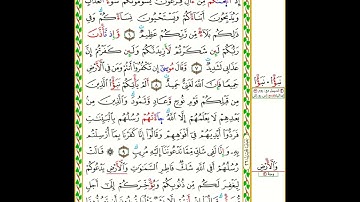 إِذْ أَنجَىٰكُم مِّنْ ءَالِ فِرْعَوْنَ يَسُومُونَكُمْ سُوٓءَ ٱلْعَذَابِ
وَيُذَبِّحُونَ أَبْنَآءَكُمْ وَيَسْتَحْيُونَ نِسَآءَكُمْ وَفِى
ذَٰلِكُم بَلَآءٌ مِّن رَّبِّكُمْ عَظِيمٌ ٦ وَإِذْ تَأَذَّنَ
رَبُّكُمْ لَئِن شَكَرْتُمْ لَأَزِيدَنَّكُمْ وَلَئِن كَفَرْتُمْ إِنَّ
عَذَابِى لَشَدِيدٌ ٧ وَقَالَ مُوسَىٰٓ إِن تَكْفُرُوٓا۟ أَنتُمْ وَمَن فِى ٱلْأَرْضِ
جَمِيعًا فَإِنَّ ٱللَّهَ لَغَنِىٌّ حَمِيدٌ ٨ أَلَمْ يَأْتِكُمْ نَبَؤُا۟ ٱلَّذِينَ
مِن قَبْلِكُمْ قَوْمِ نُوحٍ وَعَادٍ وَثَمُودَ وَٱلَّذِينَ مِنۢ
بَعْدِهِمْ لَا يَعْلَمُهُمْ إِلَّا ٱللَّهُ جَآءَتْهُمْ رُسُلُهُم بِٱلْبَيِّنَٰتِ
فَرَدُّوٓا۟ أَيْدِيَهُمْ فِىٓ أَفْوَٰهِهِمْ وَقَالُوٓا۟ إِنَّا كَفَرْنَا بِمَآ أُرْسِلْتُم
بِهِۦ وَإِنَّا لَفِى شَكٍّ مِّمَّا تَدْعُونَنَآ إِلَيْهِ مُرِيبٍ ٩ قَالَتْ
رُسُلُهُمْ أَفِى ٱللَّهِ شَكٌّ فَاطِرِ ٱلسَّمَٰوَٰتِ وَٱلْأَرْضِ يَدْعُوكُمْ
لِيَغْفِرَ لَكُم مِّن ذُنُوبِكُمْ وَيُؤَخِّرَكُمْ إِلَىٰٓ أَجَلٍ
وَٱلْأَرْضِ